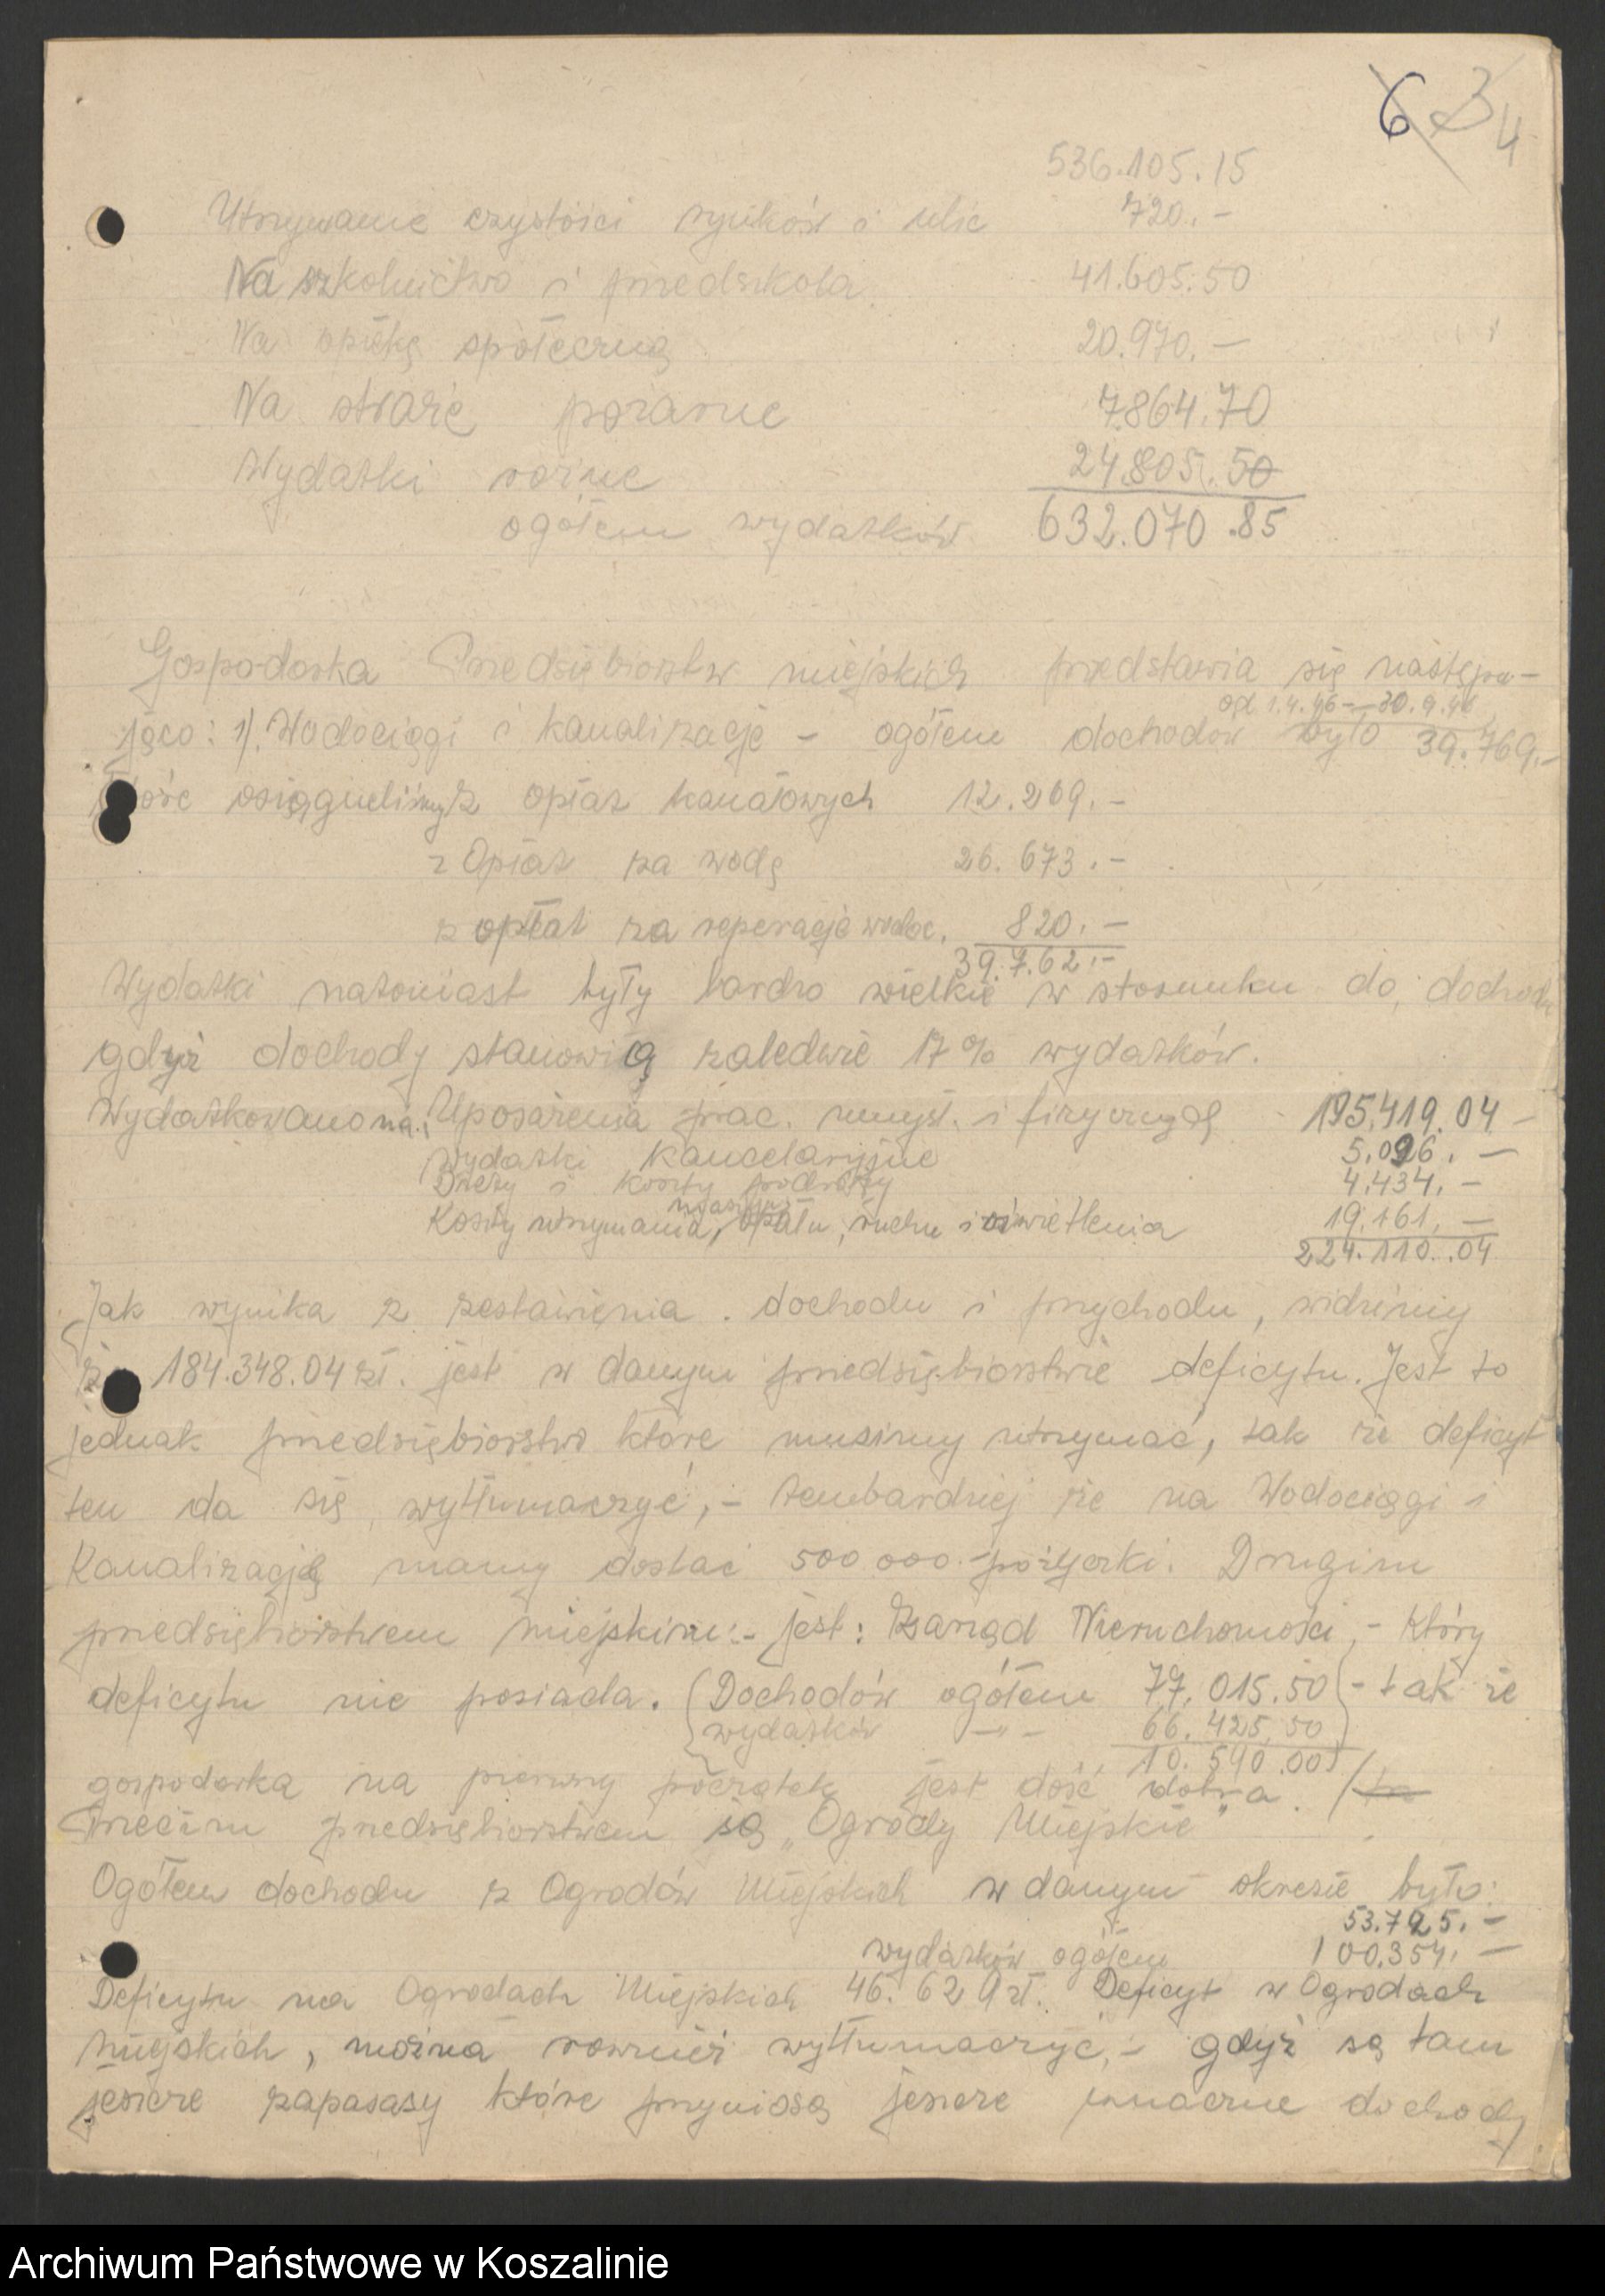 6 3 4
536.105.15
Utrzymanie czystości rynków i ulic 720.-
Na szkolnictwo i przedszkola 41.605.50
Na opiekę społeczną 20.970.-
Na straże pożarne 7.864.70
Wydatki rożne 24.805.50
ogółem wydatków 632.070.85
Gospodarka Przedsiębiorstw miejskich przedstawia się następu-
od 1.4.46 - 30.9.46
jąco: 1). Wodociągi i kanalizacje - ogółem dochodów było 39.769.-
osiągneliśmy z opłat kanałowych 12.269.-
z Opłat za wodę 26.673.-
z opłat za reperacje wodoc. 820.-
39.762.-
Wydatki natomiast były bardzo wielkie w stosunku do dochodu
gdyż dochody stanowią zaledwie 17% wydatków.
Wydatkowano na: Uposażenia prac. umysł. i fizycznych 195.419.04
wydatki kancelaryjne 5.096.-
Diety i koszty podróży 4.434.-
Koszty utrzymania, opału, ruchu i oświetlenia 19.161.-
224.110.04
Jak wynika z zestawienia dochodu i przychodu, widzimy
że 184.348.04 zł. jest w danym przedsiębiorstwie deficytu. Jest to
jednak przedsiębiorstwo które musimy utrzymać, tak że deficyt
ten da się wytłumaczyć,- tembardziej że na Wodociągi i
Kanalizacje mamy dostać 500.000.- pożyczki. Drugim
przedsiębiorstwem miejskim:- jest: Zarząd Nieruchomości,- który
deficytu nie posiada. (Dochodów ogółem 77.015.50) - tak że
wydatków -"- 66.425.50
10.590.00
gospodarka na pierwszy początek jest dość dobra.
Trzecim przedsiębiorstwem są „Ogrody Miejskie"
Ogółem dochodu z Ogrodów Miejskich w danym okresie było:
53.725.-
wydatków ogółem 100.354.-
Deficytu na Ogrodach Miejskich 46.629 zł. Deficyt w Ogrodach
Miejskich, można rownież wytłumaczyć,- gdyż są tam
jeszcze zapasasy które przyniosą jeszcze znaczne dochody
Archiwum Państwowe w Koszalinie